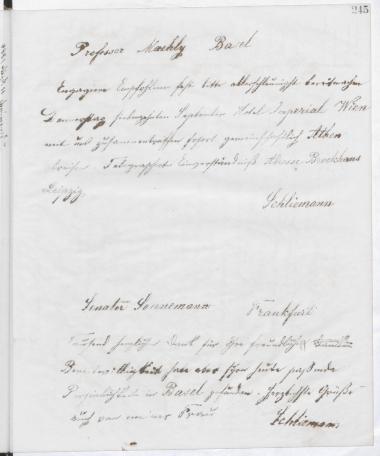 245
Professor Maehly Basel
Engagiere Empfohlene falls bitte allerschleunigst bereitmachen
Donnerstag siebzehnten September Hotel Imperial Wien
mit uns zusammentreffen sofort gemeinschaftlich Athen
weiter Telegraphiert Einverständniß Adresse Brockhaus
Leipzig
Schliemann
Senator Sonnemann Frankfurt
Tausend herzlicher Dank für Ihre freundliche
haben aber schon heute passende
Persönlichkeit in Basel gefunden. Herzlichste Grüße
auch von meiner Frau
Schliemann